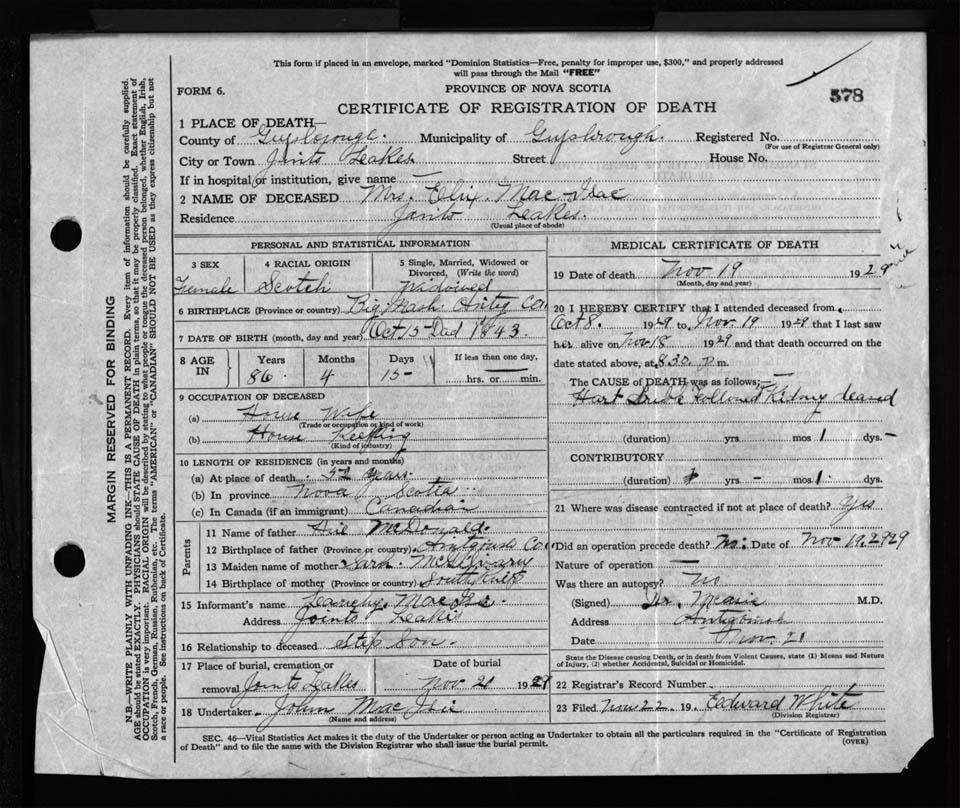 This form if placed in an envelope, marked "Dominion Statistics—Free, penalty for improper use, $300," and properly addressed
will pass through the Mail "FREE"
FORM 6.
PROVINCE OF NOVA SCOTIA
578
CERTIFICATE OF REGISTRATION OF DEATH
1 PLACE OF DEATH—
County of Guysborough. Municipality of Guysbrough. Registered No.
(For use of Registrar General only)
City or Town Jints Leakes Street House No.
If in hospital or institution, give name —
2 NAME OF DECEASED Mrs. Eliz. Mac Isac
Residence Jants Leakes.
(Usual place of abode)
PERSONAL AND STATISTICAL INFORMATION
3 SEX 4 RACIAL ORIGIN 5 Single, Married, Widowed or Divorced, (Write the word)
Female Scotch Widowed
6 BIRTHPLACE (Province or country) Big Mash Antig Con
7 DATE OF BIRTH (month, day and year) Oct 15- 1843.
8 AGE IN Years Months Days If less than one day,
86. 4 15- hrs. or min.
9 OCCUPATION OF DECEASED
(a) House Wife
(Trade or occupation or kind of work)
(b) House Keeping
(Kind of industry)
10 LENGTH OF RESIDENCE (in years and months)
(a) At place of death 52 years
(b) In province Nova Scotia
(c) In Canada (if an immigrant) Canadian
Parents
11 Name of father McDonald.
12 Birthplace of father (Province or country) Con
13 Maiden name of mother Sara
14 Birthplace of mother (Province or country) South
15 Informant's name
Address Joints Leakes
16 Relationship to deceased Step Son.
17 Place of burial, cremation or Date of burial
removal Joints Leakes Nov 21 1929
18 Undertaker John Mac
(Name and address)
MEDICAL CERTIFICATE OF DEATH
19 Date of death Nov 19 1929
(Month, day and year)
20 I HEREBY CERTIFY that I attended deceased from
Oct 8. 1929 to Nov. 19 1929 that I last saw
her alive on Nov 18 1929 and that death occurred on
date stated above, at 8.30 p m.
The CAUSE of DEATH was as follows:—
Hart Followed Kidney
(duration) yrs. mos 1 dys. -
CONTRIBUTORY
(duration) yrs. – mos 1. dys.
21 Where was disease contracted if not at place of death? Yes
Did an operation precede death? No: Date of Nov 19, 2929
Nature of operation —
Was there an autopsy? No
(Signed) Dr. M.D.
Address
Date Nov. 21
State the Disease causing Death, or in death from Violent Causes, state (1) Means and Nature
of Injury, (2) whether Accidental, Suicidal or Homicidal.
22 Registrar's Record Number
23 Filed Nov 22. 19 Edward White
(Division Registrar)
SEC. 46—Vital Statistics Act makes it the duty of the Undertaker or person acting as Undertaker to obtain all the particulars required in the "Certificate of Registration
of Death" and to file the same with the Division Registrar who shall issue the burial permit.
(OVER)
MARGIN RESERVED FOR BINDING
N.B.—WRITE PLAINLY WITH UNFADING INK—THIS IS A PERMANENT RECORD. Every item of information should be carefully supplied.
AGE should be stated EXACTLY. PHYSICIANS should STATE CAUSE OF DEATH in plain terms, so that it may be properly classified. Exact statement of
OCCUPATION is very important. RACIAL ORIGIN will be described by stating to what people or tongue the deceased person belonged, whether English, Irish,
Scotch, French, German, Russian, Ruthenian, etc. The terms "AMERICAN" or "CANADIAN" SHOULD NOT BE USED as they express citizenship but not
a race or people. See instructions on back of Certificate.